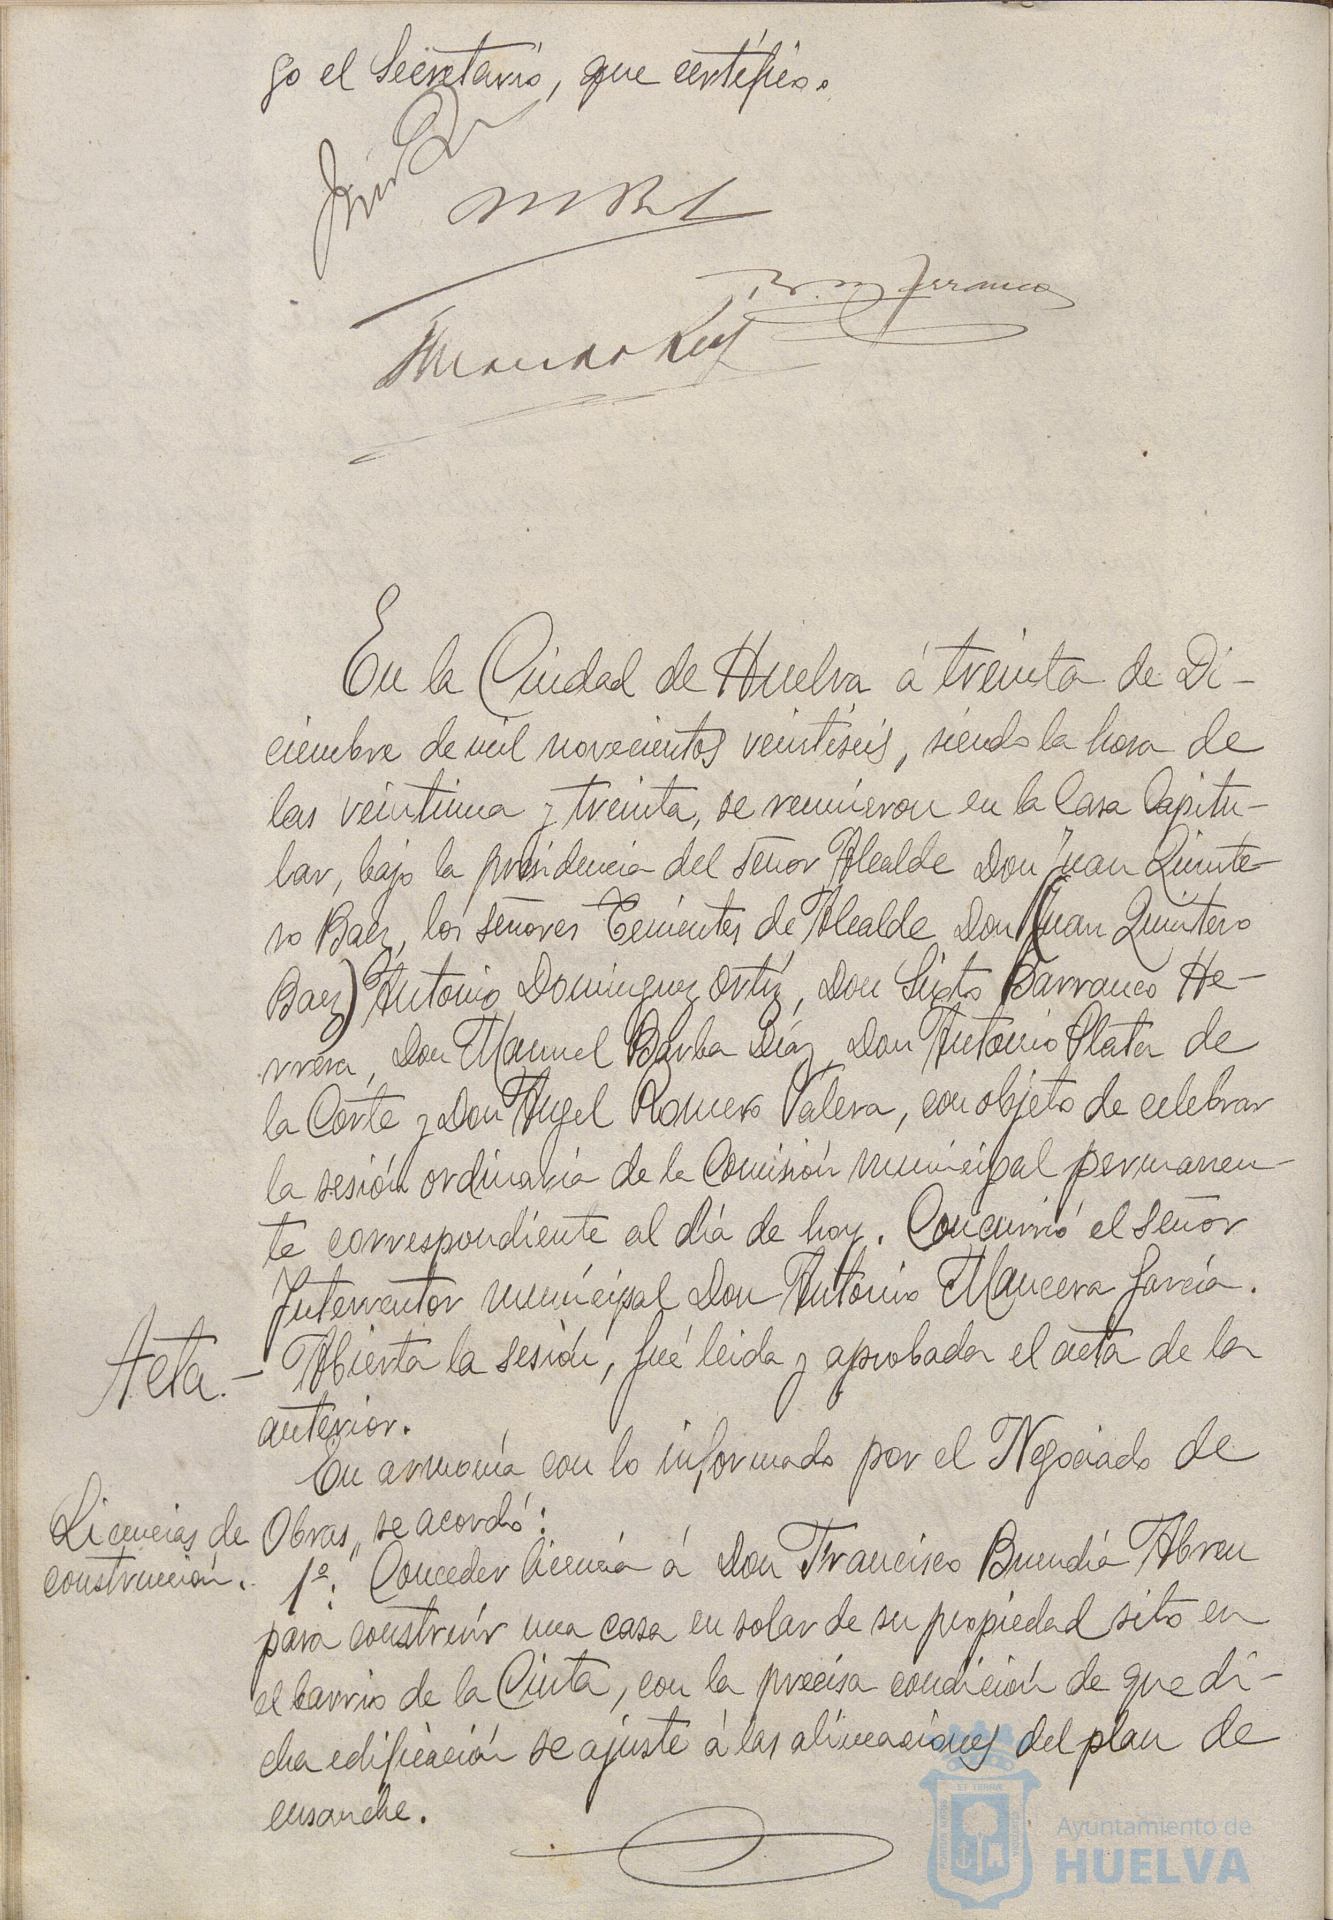 go el Secretario, que certifico.
En la Ciudad de Huelva á treinta de Di-
ciembre de mil novecientos veintiseis, siendo la hora de
las veintiuna y treinta, se reunieron en la Casa Capitu-
lar, bajo la presidencia del señor Alcalde Don Juan Quinte-
ro Baez, los señores Tenientes de Alcalde Don (Juan Quintero
Baez) Antonio Dominguez Ortíz, Don Sixto Barranco He-
rrera, Don Manuel Barba Díaz, Don Antonio Plata de
la Corte y Don Angel Romero Valera, con objeto de celebrar
la sesión ordinaria de la Comisión municipal permanen-
te correspondiente al día de hoy. Concurrió el señor
Interventor municipal Don Antonio Mancera García.
Acta.- Abierta la sesión, fué leida y aprobada el acta de la
anterior.
En armonía con lo informado por el Negociado de
Licencias de Obras, se acordó:
construcción. 1º. Conceder licencia á Don Francisco Buendía Abreu
para construir una casa en solar de su propiedad sito en
el barrio de la Cinta, con la precisa condición de que di-
cha edificación se ajuste á las alineaciones del plan de
ensanche.
Ayuntamiento de
HUELVA